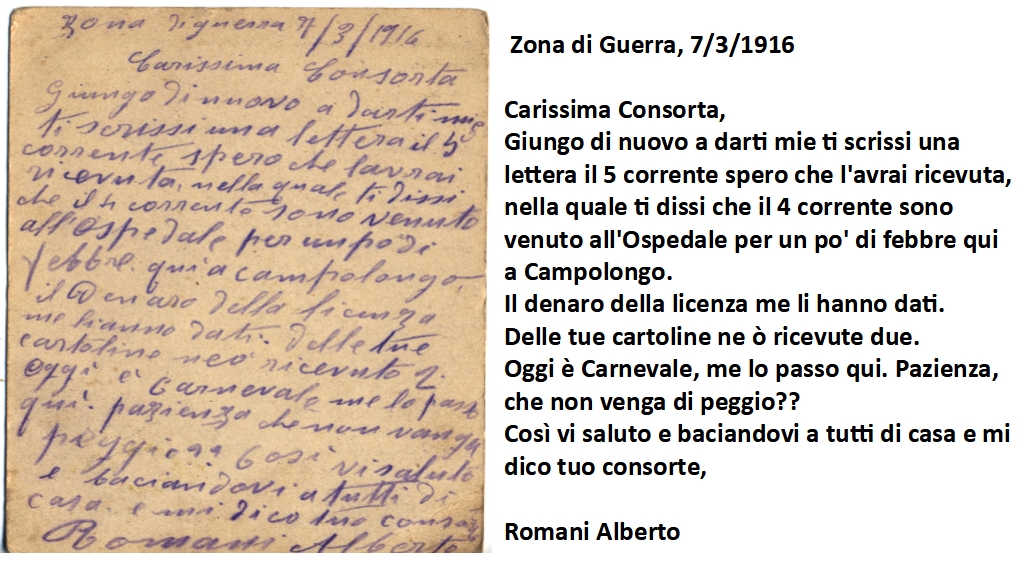 Zona di guerra 7/3/1916
Carissima Consorta
Giungo di nuovo a darti mie
ti scrissi una lettera il 5
corrente spero che lavrai
ricevuta, nella quale ti dissi
che il 4 corrente sono venuto
all'Ospedale per un po di
febbre. qui a campolongo.
il Denaro della licenza
me lianno dati. delle tue
cartoline neò ricevuto 2.
Oggi è Carnevale me lo pass
qui. pazienza che non vanga
peggio?? Così vi saluto
e baciandovi a tutti di
casa. e mi dico tuo
Romani Alberto
Zona di Guerra, 7/3/1916
Carissima Consorta,
Giungo di nuovo a darti mie ti scrissi una
lettera il 5 corrente spero che l'avrai ricevuta,
nella quale ti dissi che il 4 corrente sono
venuto all'Ospedale per un po' di febbre qui
a Campolongo.
Il denaro della licenza me li hanno dati.
Delle tue cartoline ne ò ricevute due.
Oggi è Carnevale, me lo passo qui. Pazienza,
che non venga di peggio??
Così vi saluto e baciandovi a tutti di casa e mi
dico tuo consorte,
Romani Alberto